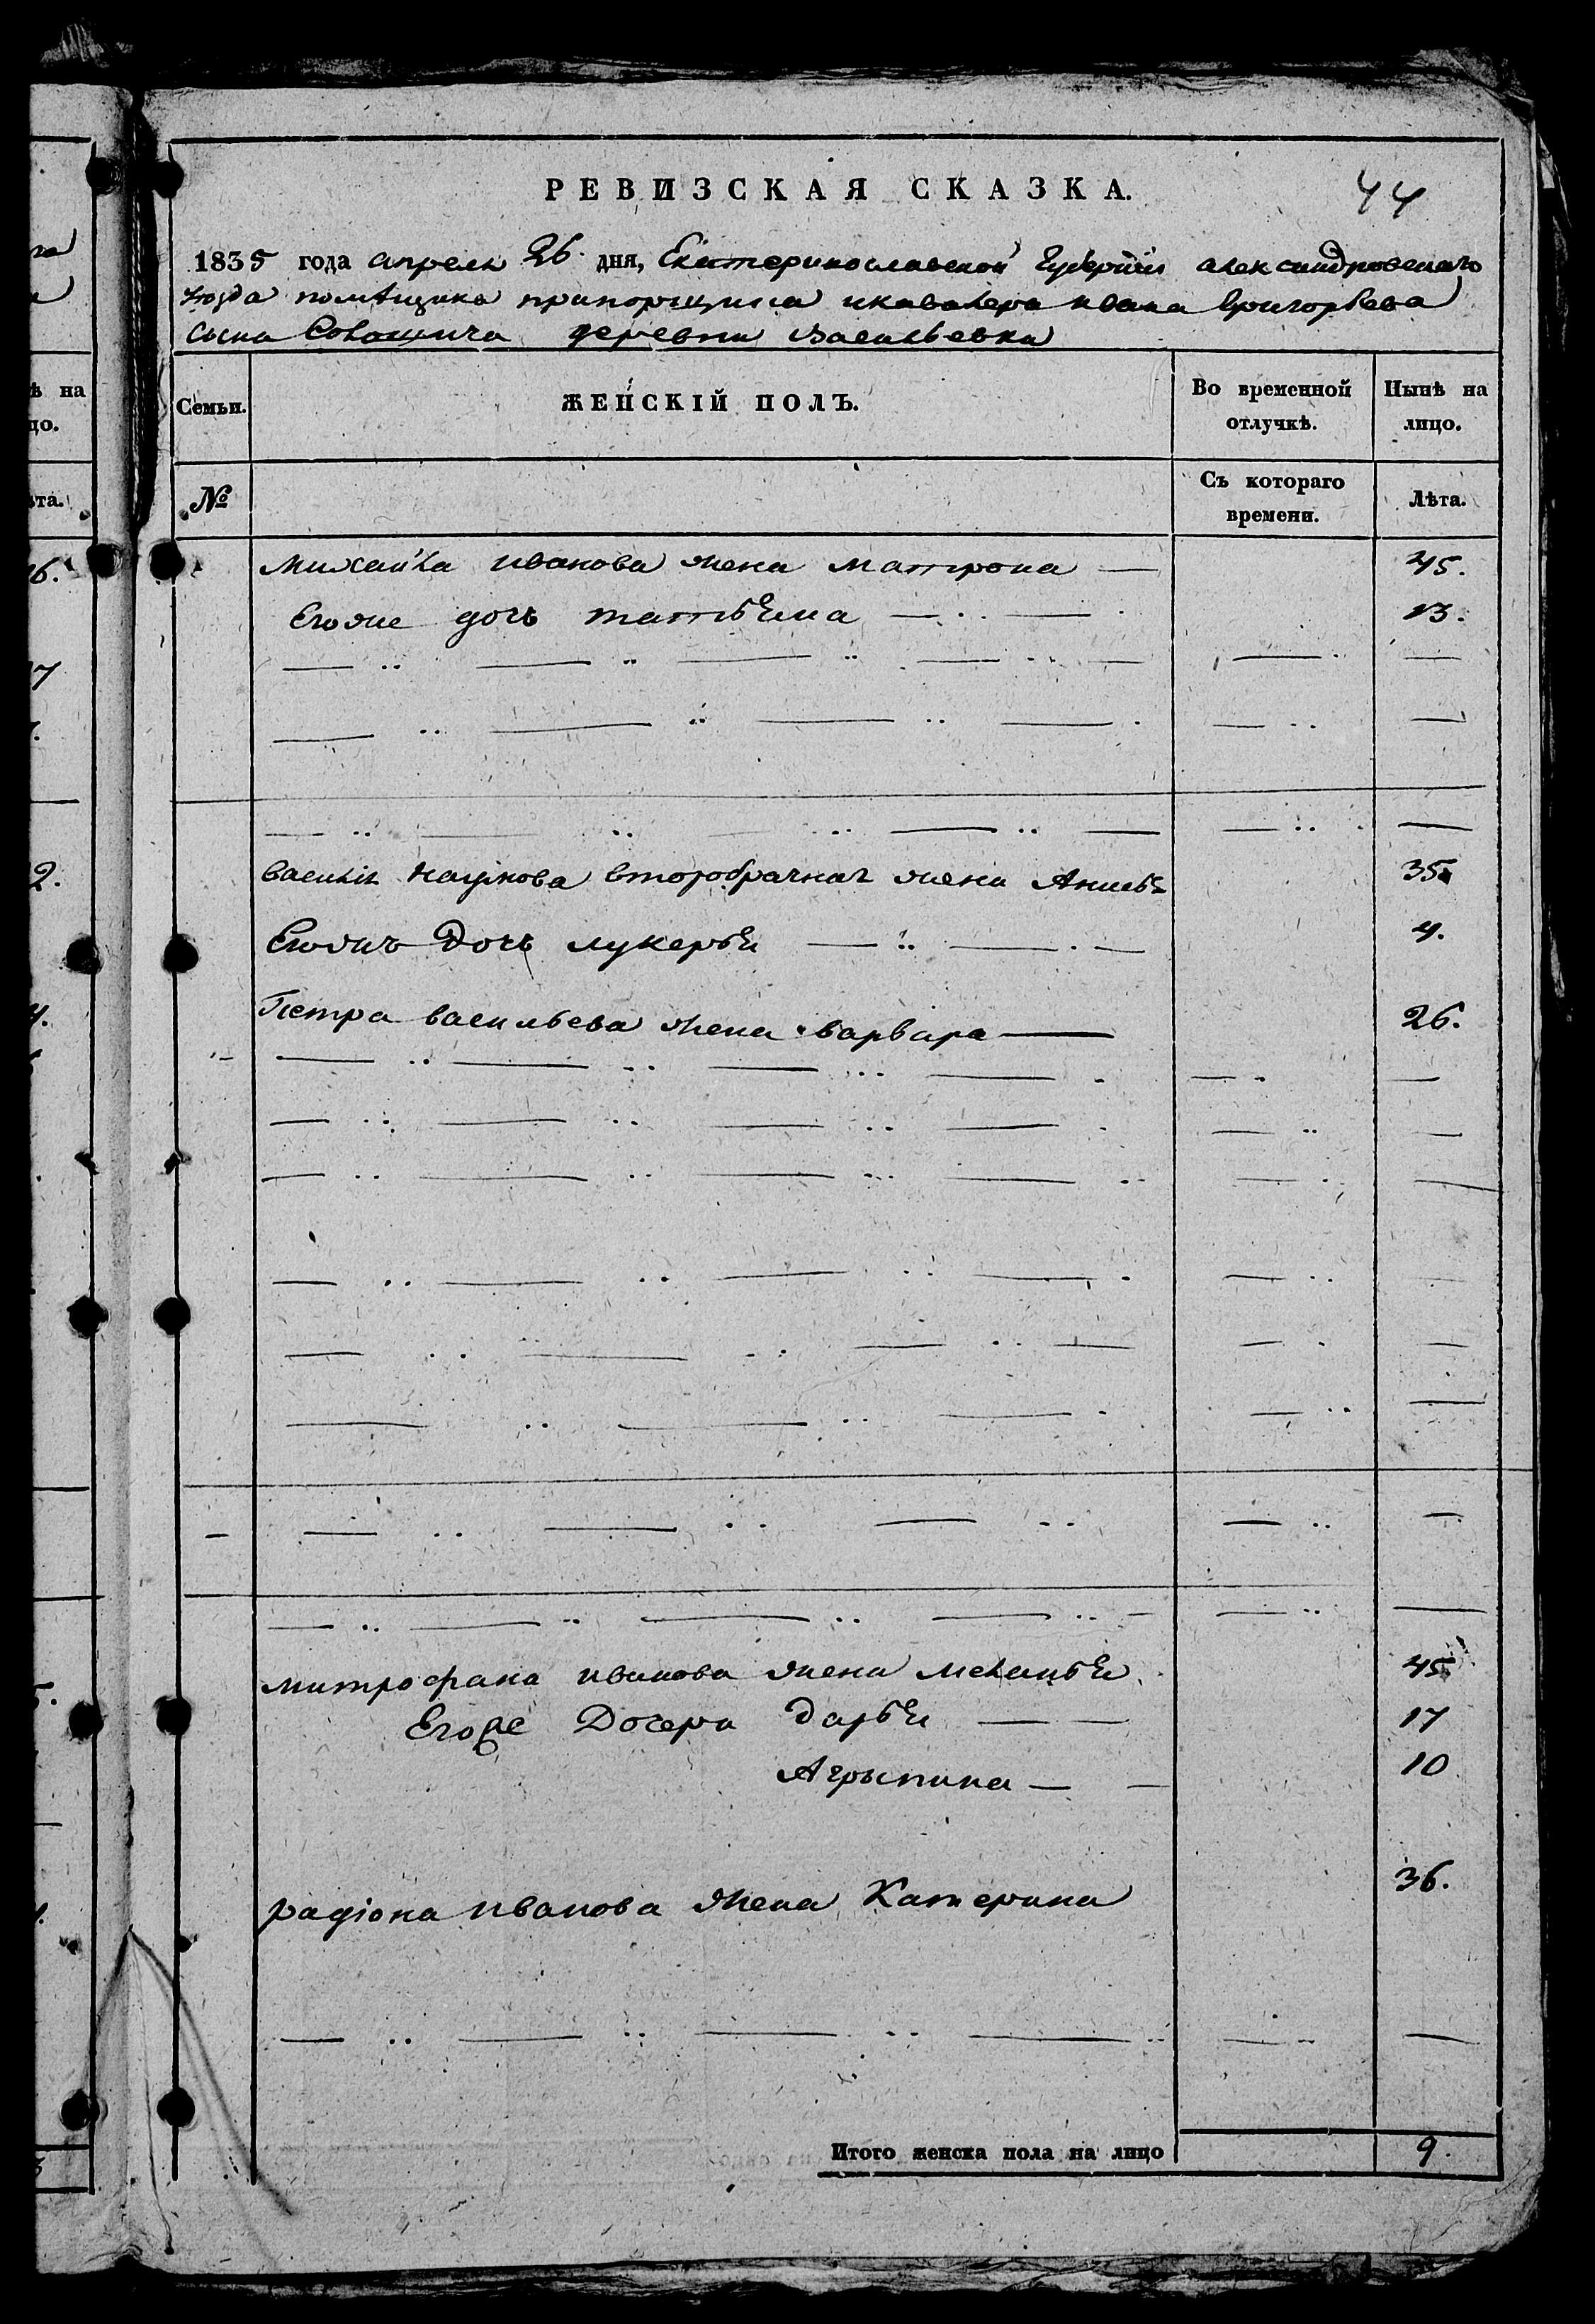 РЕВИЗСКАЯ СКАЗКА.
44
1835 года апреля 26 дня, Екатеринославской Губернии александровскаго
уезда помѣщика прапорщика икавалера ивана Григорьева
сына деревни васильевки
ѣ на
цо.
Семьи.
ЖЕНСКІЙ ПОЛЪ.
Во временной
отлучкѣ.
Нынѣ на
лицо.
ѣта.
№
Съ котораго
времени.
Лѣта.
михайла иванова жена матрона 45.
Егоже дочь татьяна 13.
василия наумова второбрачная жена 35
Егожъ Дочь лукерья 4.
Петра васильева жена варвара 26.
митрофана иванова жена меланья 45
Егоже Дочери дарья 17
Агрыпина 10
радіона иванова жена Катерина 36.
Итого женска пола на лицо 9.